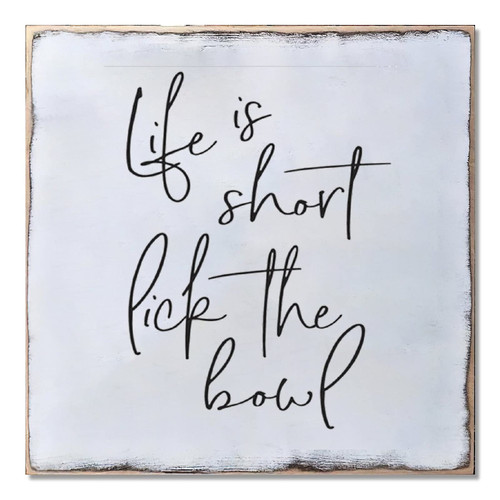 Life is
short
lick the
bowl